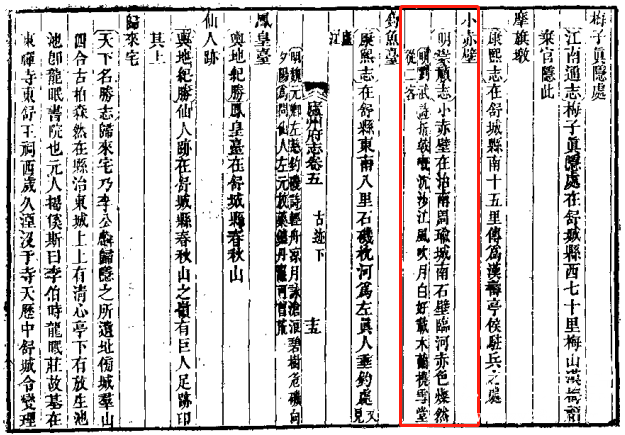 梅子眞隱處
江南通志梅子眞隱處在舒城縣西七十里梅山漢梅福
棄官隱此
摩旗墩
康熙志在舒城縣南十五里傳爲漢壽亭侯駐兵之處
小赤壁
明崇禎志小赤壁在治南周瑜城南石壁臨河赤色燦然
明劉武詩指敎嘅沉沙江風吹月白好載木蘭橈雪堂
從二客
釣魚臺
康熙志在舒縣東南八里石磯枕河爲左眞人垂釣處又見
廬江
明魏元鄴左慈釣磯詩輕舟涼月詠滄浪碧樹危磯向
夕陽爲問仙人左元放
廬州府志卷五 古迹下 十五
鳳皇臺
輿地紀勝鳳皇臺在舒城縣春秋山
仙人跡
輿地紀勝仙人跡在舒城縣春秋山之嶺有巨人足跡印
其上
歸來宅
天下名勝志歸來宅乃李公麟歸隱之所遺址傍城羣山
四合古柏森然在縣治東城上上有淸心亭下有放生池
池卽龍眠書院也元人揭傒斯曰李伯時龍眠莊故基在
東禪寺東舒王祠西歲久湮沒于寺天歷中舒城令燮理